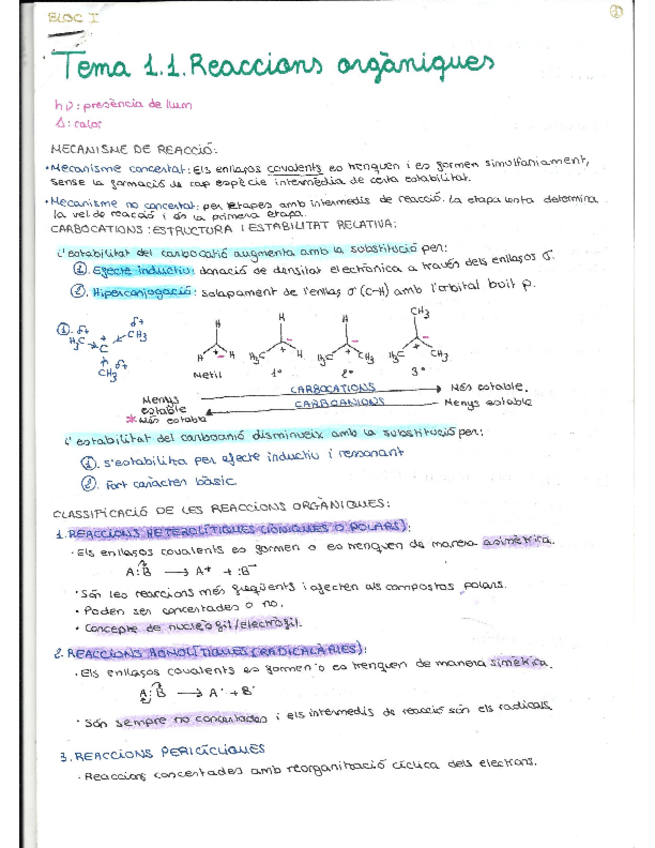 BLOC I
1
Tema 1.1. Reaccions orgàniques
hν: presència de llum
Δ: calor
MECANISME DE REACCIÓ:
·Mecanisme concertat: Els enllaços covalents es trenquen i es formen simultàniament,
sense la formació de cap espècie intermèdia de certa estabilitat.
·Mecanisme no concertat: per etapes amb intermedis de reacció. La etapa lenta determina
la vel de reacció i és la primera etapa.
CARBOCATIONS: ESTRUCTURA I ESTABILITAT RELATIVA:
L'estabilitat del carbocatió augmenta amb la substitució per:
①. Efecte inductiu: donació de densitat electrònica a través dels enllaços σ.
②. Hiperconjugació: solapament de l'enllaç σ (C-H) amb l'orbital buit p.
①. δ+ δ+
H₃C C + CH₃
δ+
CH₃
H H H CH₃
H + H H₃C + H H₃C + CH₃ H₃C + CH₃
Metil 1º 2º 3º
CARBOCATIONS Més estable.
Menys estable CARBOANIONS Menys estable
* Més estable
L'estabilitat del carboanió disminueix amb la substitució per:
①. s'estabilitza per efecte inductiu i ressonant
②. Fort caràcter bàsic
CLASSIFICACIÓ DE LES REACCIONS ORGÀNIQUES:
1. REACCIONS HETEROLÍTIQUES (IÒNIQUES O POLARS):
· Els enllaços covalents es formen o es trenquen de manera asimètrica.
A:B → A⁺ + :B⁻
· Són les reaccions més freqüents i afecten als compostos polars.
· Poden ser concertades o no.
· Concepte de nucleòfil/electròfil.
2. REACCIONS HOMOLÍTIQUES (RADICALÀRIES):
· Els enllaços covalents es formen o es trenquen de manera simètrica.
A:B → A· + B·
· Són sempre no concertades i els intermedis de reacció són els radicals.
3. REACCIONS PERICÍCLIQUES
· Reaccions concertades amb reorganització cíclica dels electrons.